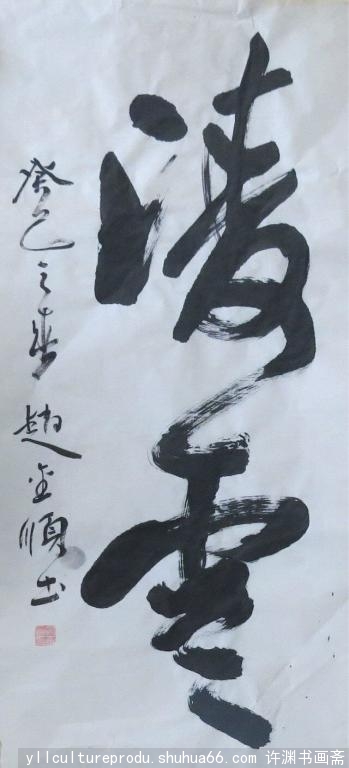 凌雲
癸巳之春 趙金順书
yllcultureprodu.shuhua66.com 许渊书画斋